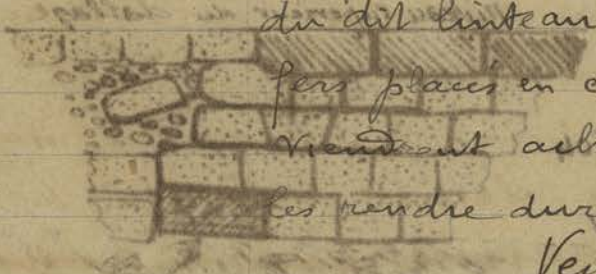 du dit linteau
fers placés en
viendront
les rendre